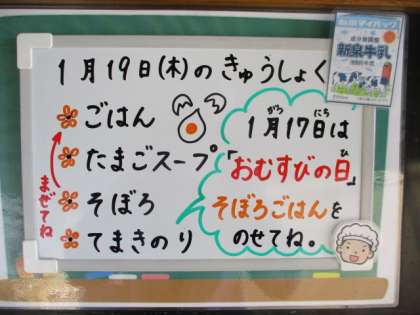 1月19日(木)のきゅうしょく
ごはん
たまごスープ
そぼろ
てまきのり
まぜてね
がつ にち
1月17日は
ひ
「おむすびの日」
そぼろごはんを
のせてね。
新泉牛乳